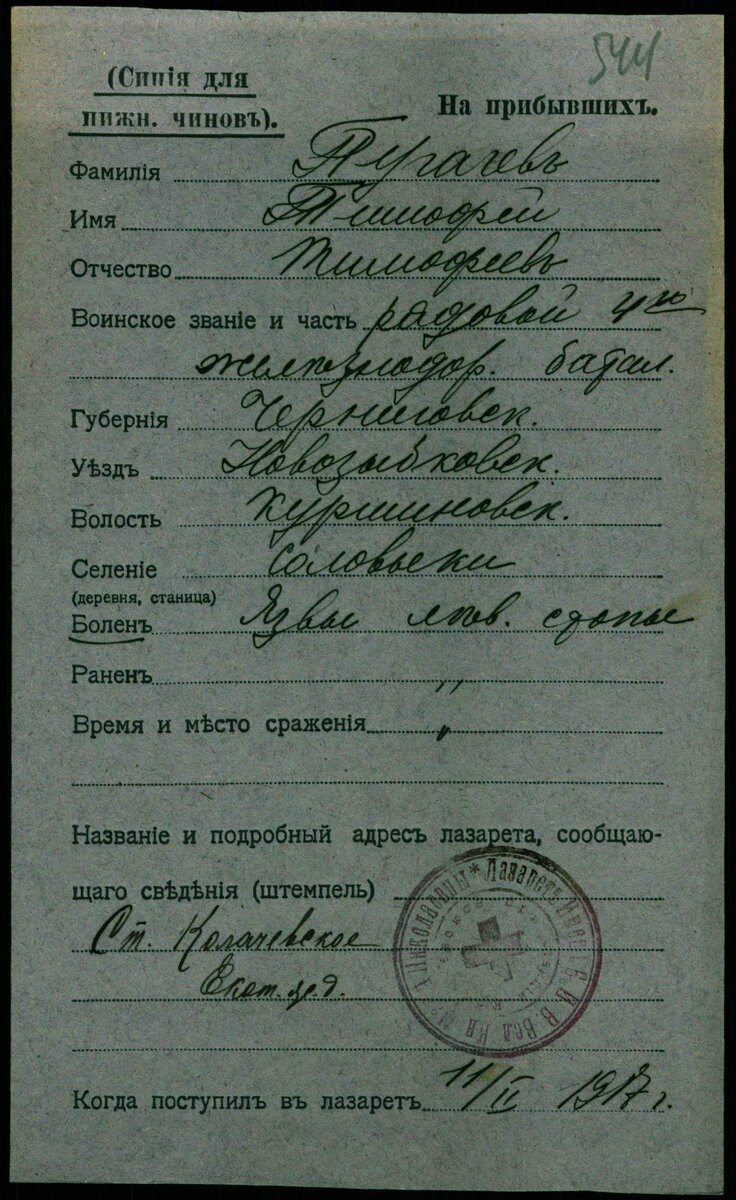 544
(Синія для
нижн. чиновъ).
На прибывшихъ.
Фамилія Пугачевъ
Имя Тимофей
Отчество Тимофеевъ
Воинское званіе и часть рядовой 4го
железнодор. батал.
Губернія Черниговск.
Уѣздъ Новозыбковск.
Волость
Селеніе Соловьевки
(деревня, станица)
Боленъ Язвы лѣв. стопы
Раненъ "
Время и мѣсто сраженія "
Названіе и подробный адресъ лазарета, сообщаю-
щаго свѣдѣнія (штемпель)
Ст. Колачевское
Екат. ж. д.
Лазаретъ Имени Е. И. В. Вел. Кн. Николаевны
Когда поступилъ въ лазаретъ 11/II 1917 г.